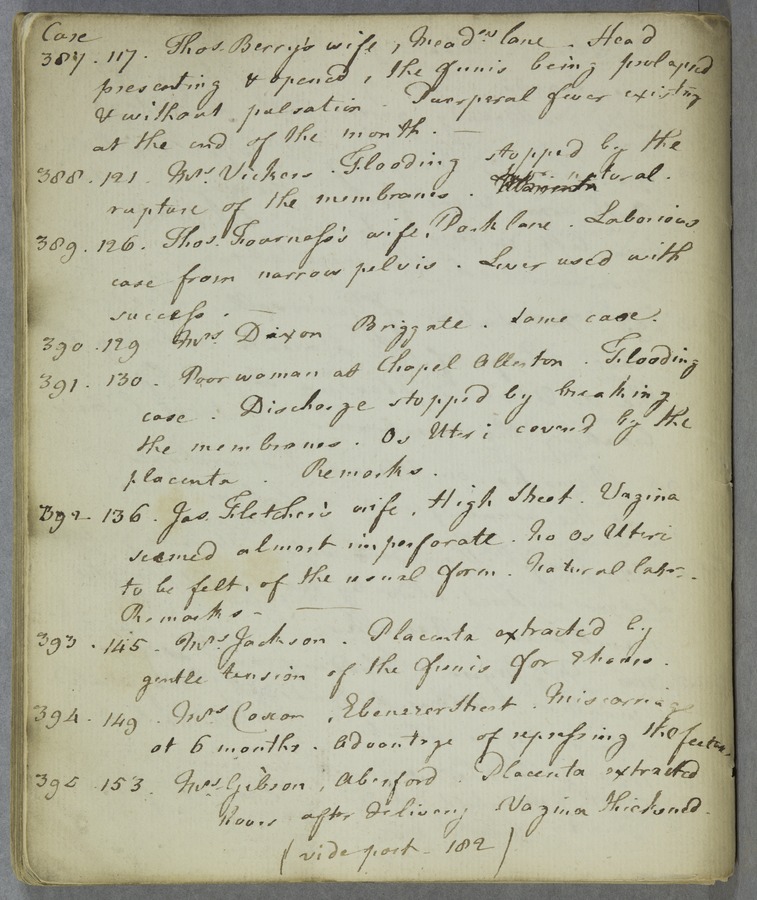 Case
387. 117. Thos. Berry's wife, Mead:ow lane. Head
presenting & opened, the funis being prolapsed
& without pulsation. Puerperal fever existing
at the end of the month. —
388. 121. Mrs. Vickers. Flooding stopped by the
rupture of the membranes. natural.
389. 126. Thos. Fourness's wife, Park lane. Laborious
case from narrow pelvis. Lever used with
success. —
390. 129 Mrs Dixon Briggate. Same case.
391. 130. Poor woman at Chapel Allerton. Flooding
case. Discharge stopped by breaking
the membranes. Os Uteri covered by the
placenta. Remarks.
392 136. Jas. Fletcher's wife, High Street. Vagina
seemed almost imperforate. No Os Uteri
to be felt, of the usual form. Natural labr.
Remarks - —
393. 145. Mrs Jackson. Placenta extracted by
gentle tension of the funis for 2 hours.
394. 149. Mrs Coxon, Ebenezer Street. Miscarriage
at 6 months. Advantage of repressing the foetus.
395 153. Mrs Gibson, Aberford. Placenta extracted
hours after delivery Vagina thickened.
(vide post - 182)